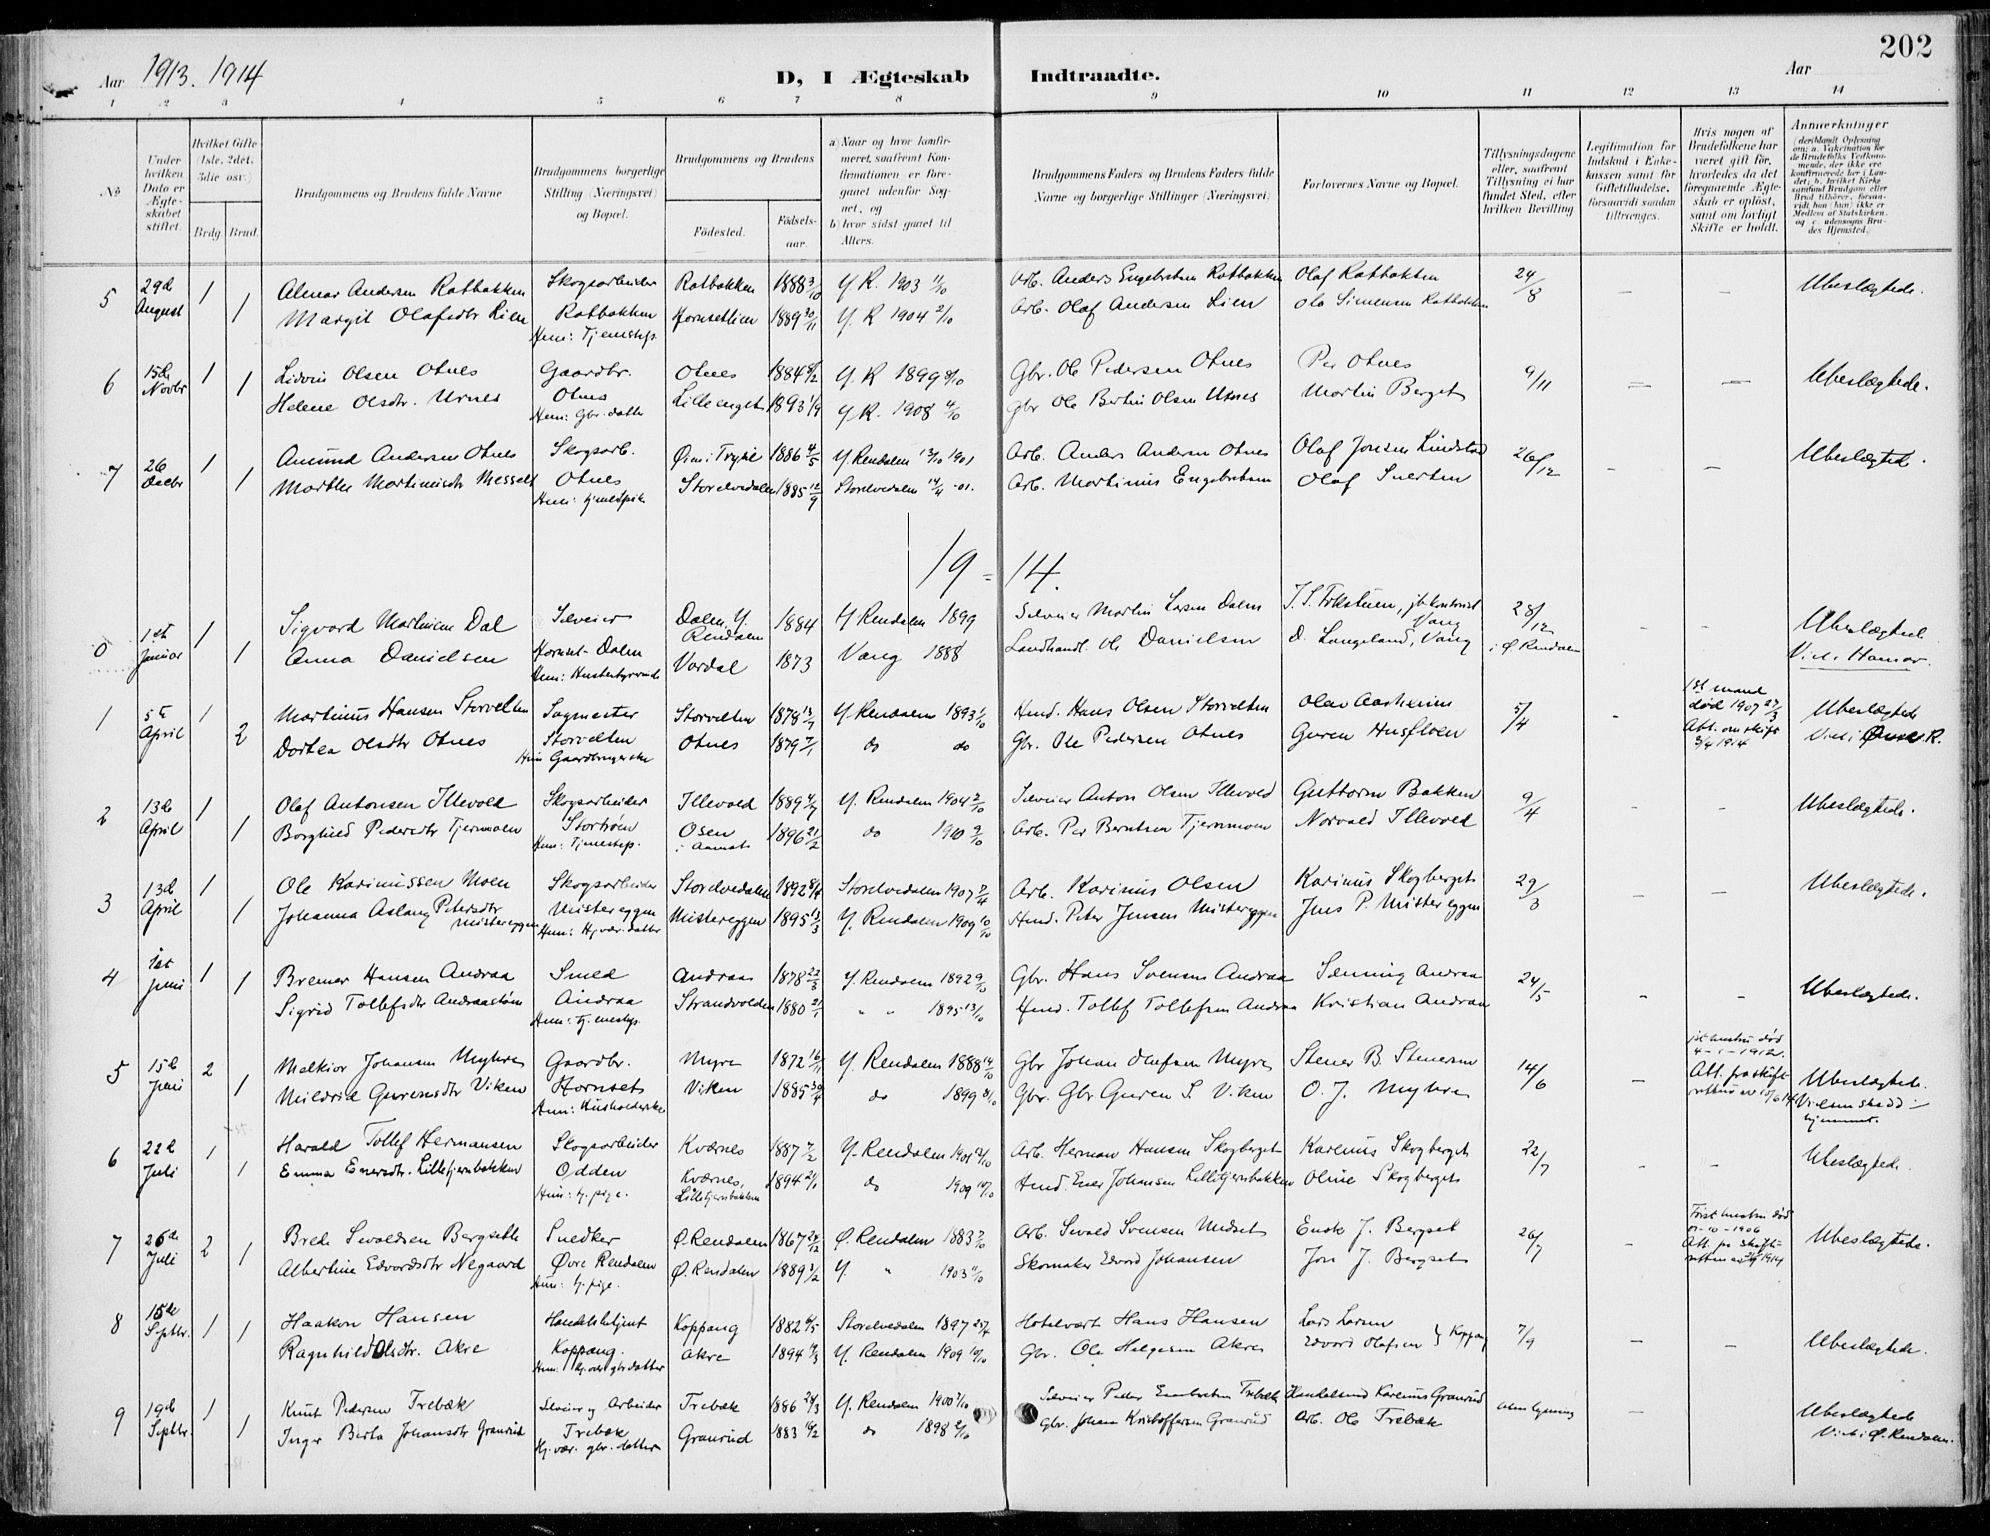 Aar 1913. 1914
D, I Ægteskab Indtraadte.
Aar
202
1 2 3 4 5 6 7 8 9 10 11 12 13 14
No
Under hvilken Dato er Ægteskabet stiftet.
Hvilket Gifte (1ste, 2det, 3die osv.)
Brdg. Brud.
Brudgommens og Brudens fulde Navne
Brudgommens borgerlige Stilling (Næringsvei) og Bopæl.
Brudgommens og Brudens
Fødested.
Fødselsaar.
a) Naar og hvor konfirmeret, saafremt Konfirmationen er foregaaet udenfor Sognet, og
b) hvor sidst gaaet til Alters.
Brudgommens Faders og Brudens Faders fulde Navne og borgerlige Stillinger (Næringsvei)
Forlovernes Navne og Bopæl.
Tillysningsdagene eller, saafremt Tillysning ei har fundet Sted, efter hvilken Bevilling
Legitimation for Indskud i Enkekassen samt for Giftetilladelse, forsaavidt saadan tiltrænges.
Hvis nogen af Brudefolkene har været gift før, hvorledes da det foregaaende Ægteskab er opløst, samt om lovligt Skifte er holdt.
Anmerkninger
(deriblandt Oplysning om: a. Vakcination for de Brudefolks Vedkommende, der ikke ere konfirmerede her i Landet; b. hvilket Kirkesamfund Brudgom eller Brud tilhører, forsaavidt han (hun) ikke er Medlem af Statskirken, og c. udensogns Brudes Hjemsted.)
5 29de August 1 Almar Andersen Ratbakken Skogsarbeider Ratbakken 1888 3/10 Y. R. 1903 11/10 Arb. Anders Engebretsen Ratbakken Olaf Ratbakken 24/8 — — Ubeslægtede.
1 Margit Olafsdtr Lien Ratbakken Hornsetlien 1889 30/11 Y. R 1904 2/10 Arb. Olaf Andersen Lien Ola Simensen Ratbakken
Hun: Tjenestep.
6 15de Novbr 1 Lidvin Olsen Otnes Gaardbr. Otnes 1884 Y. R 1899 8/10 Gbr. Ole Pedersen Otnes Per Otnes 9/11 — — Ubeslægtede.
1 Helene Olsdtr. Urnes Otnes Lilleenget 1893 1/9 Y. R. 1908 4/10 Gbr Ole Bertin Olsen Urnes Martin Berget
Hun: Gbr. datter
7 26 Decbr 1 Amund Andersen Otnes Skogsarb. Øim i Trysil 1886 4/5 Y. Rendalen 13/10 1901 Arb. Anders Andersen Otnes Olaf Jonsen Lindstad 26/12 - - Ubeslægtede.
1 Marthe Martinisdtr Messelt Otnes Storelvedalen 1885 12/9 Storelvedalen 14/4 -01. Arb. Martinus Engebretsen Olaf Suersten
Hun: tjenestpik
19 = 14.
0 1st Januar 1 Sigvard Martinsen Dal Selveier Dalen, Y. Rendalen 1884 Y Rendalen 1899 Selveier Martin Larsen Dalen J. S. Fokstuen, Vang 28/12 - - Ubeslægtede.
1 Anna Danielsen Hornset-Dalen Vardal 1873 Vang 1888 Landhandl. Ole Danielsen D. Langeland, Vang i Ø Rendalen Viet i Hamar.
Hun: Husbestyrerinde
1 5te April 1 Martinus Hansen Storvelten Sagmester Storvelten 1878 13/7 Y. Rendalen 1893 1/10 Husd. Hans Olsen Storvelten Olav Aasheim 5/4 - 1st mand død 1907 27/3 Ubeslægtede
2 Dortea Olsdtr Otnes Storvelten Otnes 1879 7/1 do do Gbr. Ole Pedersen Otnes Guren Husfloen Att. om skifte 3/4 1914 Viet i Øvre R.
Hun Gaardbrugerske
2 13de April 1 Olaf Antonsen Illevold Skogsarbeider Illevold 1889 4/7 Y. Rendalen 1904 2/10 Selveier Anton Olsen Illevold Guttorm Bakken 9/4 - - Ubeslægtede.
1 Borghild Pedersdtr Tjernmoen Stortrøen Osen i Aamot 1896 21/2 do 1910 9/10 Arb. Per Berntsen Tjernmoen Norvald Illevold
Hun: Tjenestep.
3 13de April 1 Ole Karinussen Moen Skogsarbeider Storelvedalen 1892 8/4 Storelvedalen 1907 7/4 Arb. Karinus Olsen Karinus Skogberget 29/3 — — Ubeslægtede.
1 Johanna Aslaug Petersdtr Mistereggen Mistereggen Mistereggen 1895 13/3 Y. Rendalen 1909 10/10 Husd. Peter Jensen Mistereggen Jens P. Mistereggen
Hun: Hj. vær. datter
4 1st Juni 1 Bremer Hansen Andraa Smed Andraa 1878 22/3 Y. Rendalen 1892 9/10 Gbr. Hans Svensen Andraa Senning Andraa 24/5 - - Ubeslægtede.
1 Sigrid Tollefsdtr Andraastrøm Andraa Strandvolden 1880 21/1 " " 1895 13/10 Husd. Tollef Tollefsen Andraa Kristian Andraa
Hun: tjenestep.
5 15de Juni 2 Melkior Johansen Myhre Gaardbr. Myre 1872 16/11 Y. Rendalen 1888 14/10 Gbr Johan Olafsen Myre Stener B. Stenersen 14/6 - 1st hustru død 4-1-1912. Ubeslægtede.
1 Mildrid Gurensdtr Viken Hornset Viken 1885 30/7 do 1899 8/10 Gbr. Gbr Guren S. Viken O. J. Myhre Att. fra skifteretten av 10/6 14 Vielsen skedd i hjemmet.
Hun: Husholderske
6 22de Juli 1 Harald Tollef Hermansen Skogsarbeider Kværnes 1887 7/2 Y. Rendalen 1901 13/10 Arb. Herman Hansen Skogberget Karenus Skogberget 22/7 - - Ubeslægtede.
1 Emma Enersdtr. Lilletjernbakken Odden Kværnes, Lilletjernbakken 1894 21/1 do 1909 10/10 Husd. Ener Johansen Lilletjernbakken Oline Skogberget
Hun: tj. pige.
7 26de Juli 2 Brede Sivaldsen Bergseth Snedker Ø. Rendalen 1867 24/12 Ø. Rendalen 1883 7/10 Arb. Sivald Svensen Undset Enok J. Bergset 26/7 - Først hustru død 11-10-1906 Ubeslægtede.
1 Albertine Edvardsdtr Negaard Øvre Rendalen Ø. Rendalen 1889 3/2 Y. " 1903 11/10 Skomaker Edvard Johansen Jon J. Bergset Att. fra skifteretten 1914
Hun: tj. pige.
8 15de Septbr. 1 Haakon Hansen Handelsbetjent Koppang 1882 6/5 Storelvedalen 1897 25/4 Hotelvært Hans Hansen Lars Larsen 7/9 — — Ubeslægtede.
1 Ragnhild Olsdtr. Akre Koppang. Akre 1894 Y. Rendalen 1909 10/10 Gbr. Ole Helgesen Akre Edvard Olafsen } Koppang
Hun: hj.vær gbr datter
9 19de Septbr. 1 Knut Pedersen Trebæk Selveier og Arbeider Trebæk 1886 24/3 Y. Rendalen 1900 7/10 Selveier Peder Engebretsen Trebæk Handelsmd Karenus Granrud uten lysning Ubeslægtede
1 Inger Berta Johansdtr Granrud Trebæk Granrud 1883 16/2 do 1898 2/10 Gbr. Johan Kristoffersen Granrud Arb. Ole Trebæk Viet i Ø. Rendalen.
Hj. vær. gbr. datter